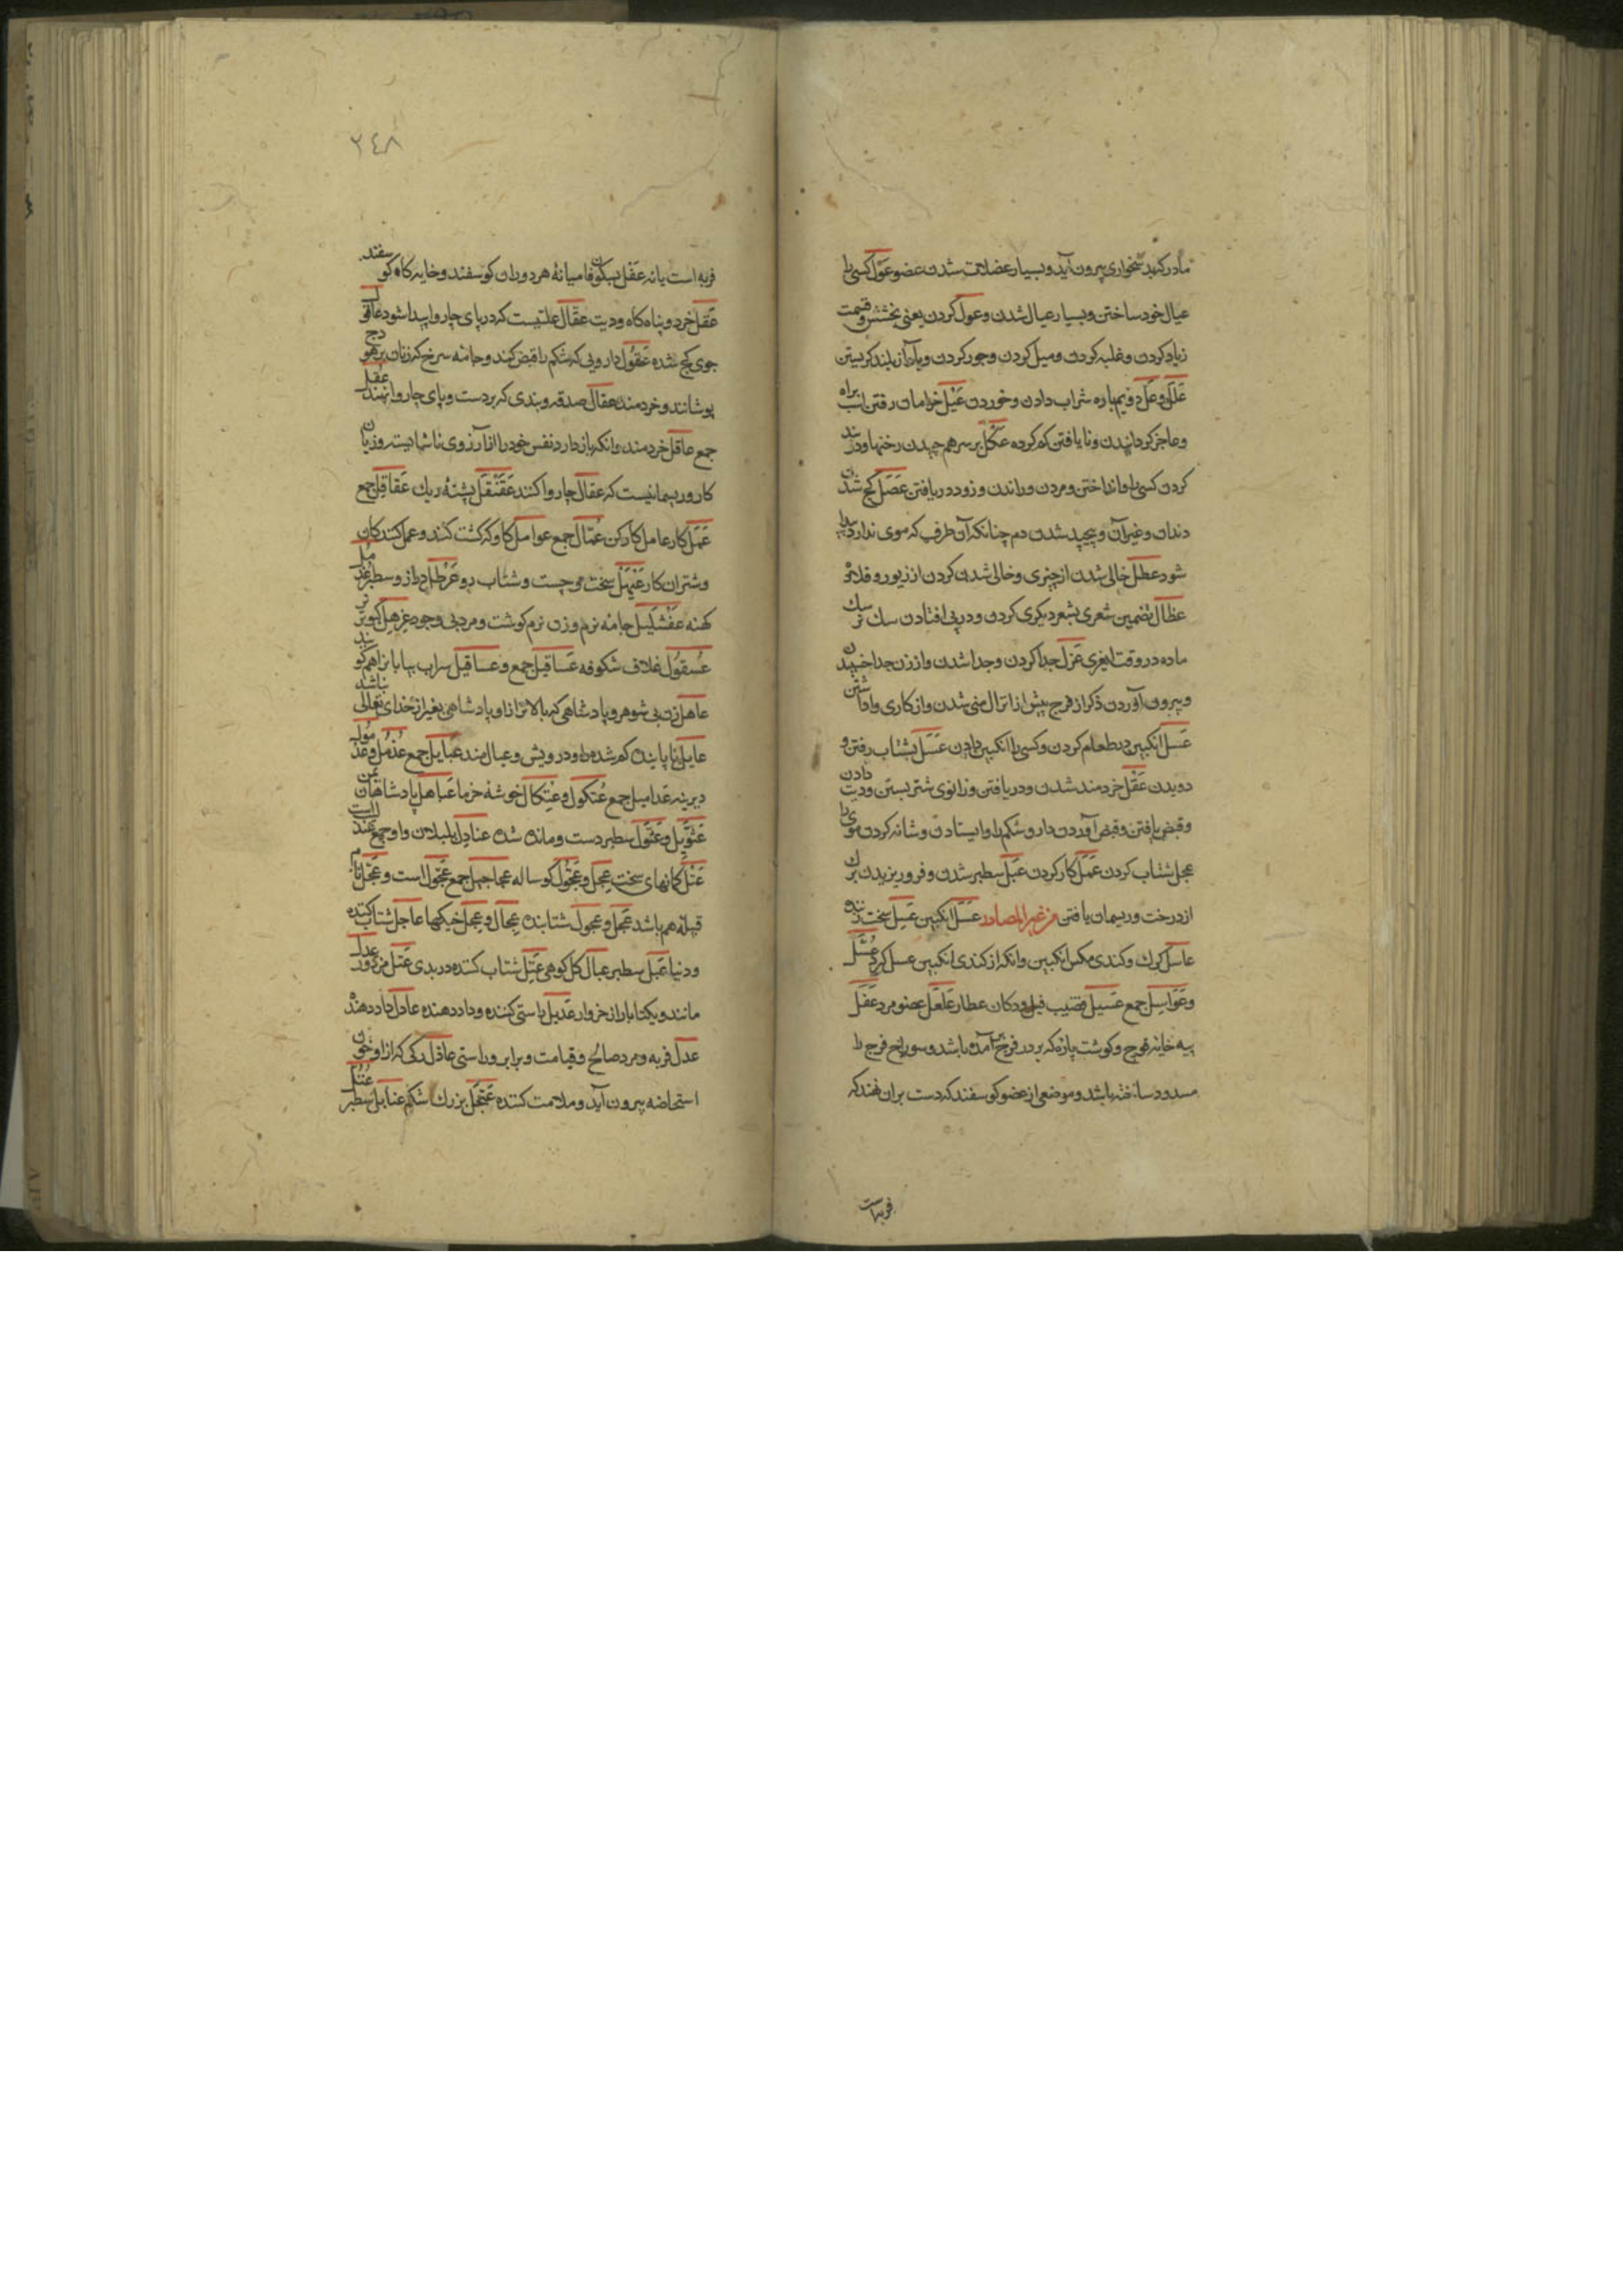 مادر کنید بخواری بیرون آید و بسیار عضلات شدن عضو عَوْل کسی را
عیال خود ساختن و بسیار عیال شدن و عول کردن یعنی بخشش و قسمت
زیاد کردن و غلبه کردن و میل کردن و جور کردن و بآواز بلند کریستن
عَلَل و عَلّ دویم باره شراب دادن و خوردن عَیْل خرامان رفتن اسب براه
و عاجز کردانیدن و نایافتن کم کرده عَکْل بر سر هم چیدن رختها و در بند
کردن کسی را و انداختن و مردن و راندن و زود دریافتن عَصَل کج شدن
دندان و غیر آن و پیچیده شدن دم چنانکه آن طرف که موی ندارد پیدا
شود عطل خالی شدن از چیزی و خالی شدن کردن از زیور و قلاده
عظال تضمین شعری بشعر دیکری کردن و در پی افتادن سک نر سک
ماده در وقت لغزی عَزْل جدا کردن و جدا شدن و از زن جدا خسپیدن
و بیرون آوردن ذکر از فرج پیش از انزال منی شدن و از کاری واداشتن
عَسْل انکبین در طعام کردن و کسی را انکبین دادن عَسَل بشتاب رفتن و
دویدن عَقْل خردمند شدن و دریافتن و زانوی شتر بستن و دیت دادن
و قبض یافتن و قبض آوردن دارو شکم را و ایستادن و شانه کردن موی را
عجل شتاب کردن عَمَل کار کردن عَبَل سطبر شدن و فروریزیدن برک
از درخت و ریسمان یافتن من غیر المصادر عَسَل انکبین عَسِل سخت زننده
عاسل کرک و کندی مکس انکبین و آنکه از کندی انکبین عسل کیرد عُسَّل
و عَوَاسِل جمع عَسیل قضیب فیل و دکان عطار عَلْعَل عضو مرد عَفَل
پیه خایه قوچ و کوشت پاره که بر در فرج آمده باشد و سوراخ فرج را
مسدود ساخته باشد و موضعی از عضو کوسفند که دست بران نهند که
فربه است
۲٤۸
فربه است یا نه عَفْل بسکون فا میانهٔ هر دو ران کوسفند و خایه کاه کوسفند
عَقل خرد و پناه کاه و دیت عقّال علتیست که در پای چاروا پیدا شود عاقول
جوی کج شده عَقُول دارویی که شکم را قبض کند و جامه سرخ که زنان بر هودج
پوشانند و خردمند عقال صدقه و بندی که بر دست و پای چاروا نهند عُقّل
جمع عاقل خردمند و آنکه بازدارد نفس خود را از آرزوی ناشایسته و زیان
کار و ریسمانیست که عقال چاروا کنند عَقَنْقَل پشتهٔ ریک عَقاقِل جمع
عَمَل کار عامل کارکن عُمّال جمع عوامل کاو که کشت کنند و عمل کنندکان
و شتران کار عَیْهَل سخت و چست و شتاب رو عَرْطَل دراز و سطبر
کهنه عَفْشَلیل جامه نرم و زن نرم کوشت و مرد بی وجود عِزهِل کبوتر نر
عُسقُول غلاف شکوفه عَساقیل جمع و عساقیل سراب بیابانرا هم کویند
عاهل زن بی شوهر و پادشاهی که بالاتر از او پادشاهی بغیر از خدای تعالی نباشد
عایل نایابنده کم شده را و درویش و عیال مند عَیایل جمع عُدْمُل و عُدْمُول
دیرینه عدامیل جمع عُثکول و عِثکال خوشه خرما عَباهِل پادشاهان یمن
عَنْل کمانهای سخت عِجل و عِجَّول کوساله عجاجیل جمع عِجَّول است و عِجْل نام
قبیله هم باشد عَجِل و عجول شتابنده عِجال و عِجَل خیکها عاجل شتاب کننده
و دنیا عَبل سطبر عبال کل کوهی عَتِل شتاب کننده در بدی عَتل مزدور عِدل
مانند و یکتای بار از خروار عَدیل راستی کننده و داد دهنده عادل داد دهنده
عدل فربه و مرد صالح و قیامت و برابر و راستی عاذل رکی که از او خون
استحاضه بیرون آید و ملامت کننده عَثْجَل بزرک شکم عنابل سطبر عُتُلّ